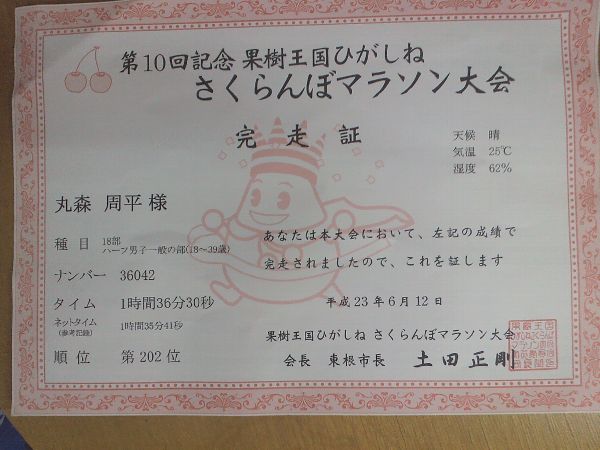 第10回記念 果樹王国ひがしね
さくらんぼマラソン大会
完走証
天候 晴
気温 25℃
湿度 62%
丸森 周平 様
種目 18部
ハーフ男子一般の部(18～39歳)
ナンバー 36042
タイム 1時間36分30秒
ネットタイム 1時間35分41秒
(参考記録)
順位 第202位
あなたは本大会において、左記の成績で
完走されましたので、これを証します
平成23年6月12日
果樹王国ひがしね さくらんぼマラソン大会
会長 東根市長 土田正剛